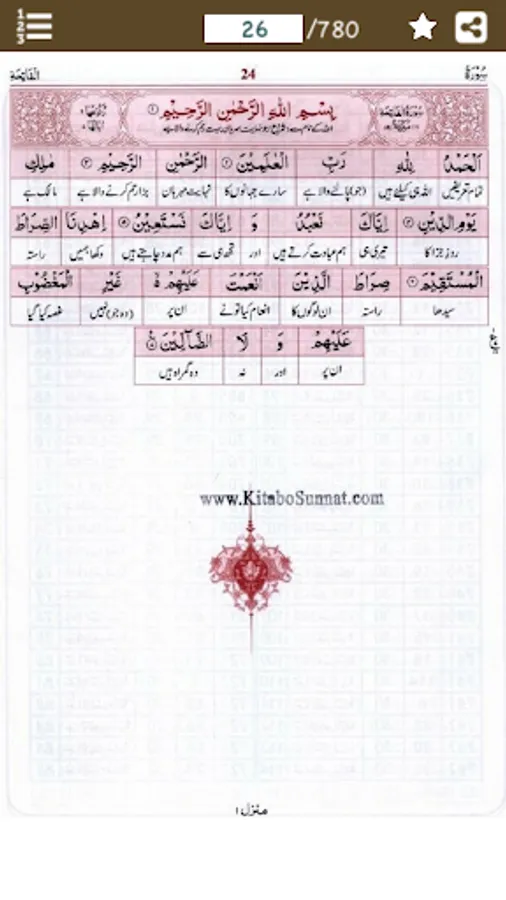 1
2
3
26 /780
الفَاتِحَة 24 سُورَةُ
بِسْمِ اللّٰهِ الرَّحْمٰنِ الرَّحِيْمِ ۝۱
اَلْحَمْدُ لِلّٰهِ رَبِّ الْعٰلَمِيْنَ ۝۲ الرَّحْمٰنِ الرَّحِيْمِ ۝۳ مٰلِكِ
تمام تعریفیں اللہ ہی کیلئے ہیں (جو) پالنے والا ہے سارے جہانوں کا نہایت مہربان بڑا رحم کرنے والا ہے مالک ہے
يَوْمِ الدِّيْنِ ۝۴ اِيَّاكَ نَعْبُدُ وَ اِيَّاكَ نَسْتَعِيْنُ ۝۵ اِهْدِنَا الصِّرَاطَ
روز جزا کا تیری ہی ہم عبادت کرتے ہیں اور تجھ ہی سے ہم مدد چاہتے ہیں دکھا ہمیں راستہ
الْمُسْتَقِيْمَ ۝۶ صِرَاطَ الَّذِيْنَ اَنْعَمْتَ عَلَيْهِمْ ۝۷ غَيْرِ الْمَغْضُوْبِ
سیدھا راستہ ان لوگوں کا انعام کیا تو نے ان پر (وہ جو) نہیں غصہ کیا گیا
عَلَيْهِمْ وَ لَا الضَّآلِّيْنَ ۝۸
ان پر اور نہ وہ گمراہ ہیں
www.KitaboSunnat.com
منزل ۱